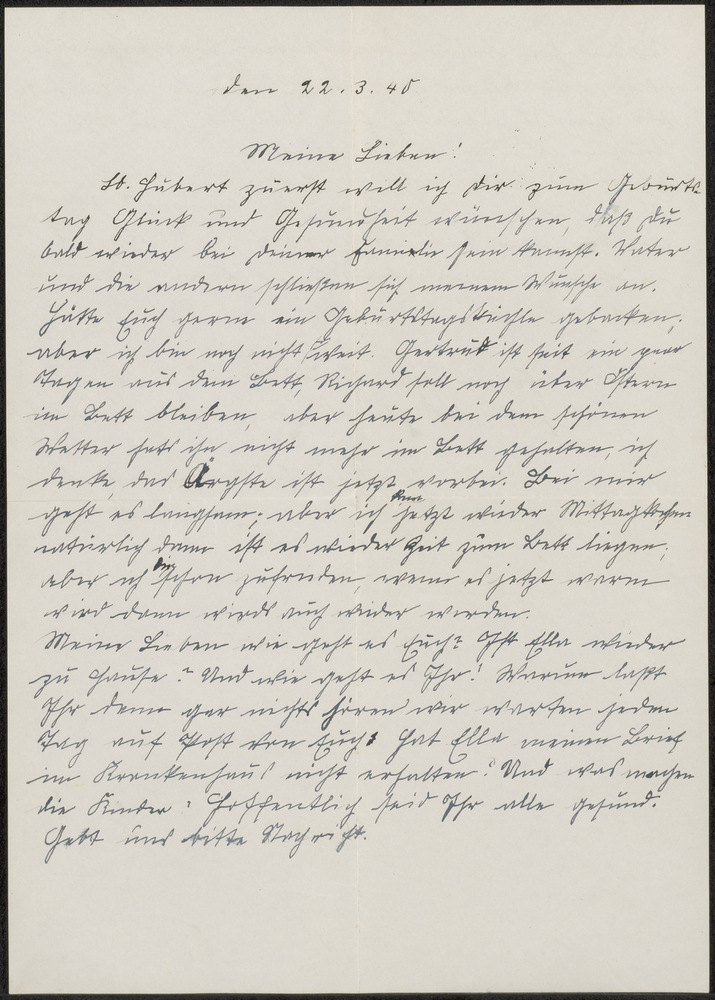 den 22.3.40
Meine Lieben!
Lb. Hubert zuerst will ich Dir zum Geburts
tag Glück und Gesundheit wünschen, daß Du
bald wieder bei Deiner Familie sein kannst. Vater
und die andern schließen sich meinem Wunsche an.
Hätte Euch gern ein gebacken;
aber ich bin noch nicht so weit. Gertrud ist seit ein paar
Tagen aus dem Bett, Richard soll noch über Ostern
im Bett bleiben, aber heute bei dem schönen
Wetter hats ihn nicht mehr im Bett gehalten, ich
denke, das Ärgste ist jetzt vorbei. Bei mir
geht es langsam; aber ich kann jetzt wieder Mittagkochen
natürlich dann ist es wieder Zeit zum Bett liegen;
aber ich bin schon zufrieden, wenn es jetzt warm
wird dann wirds auch wieder werden.
Meine Lieben wie geht es Euch? Ist Ella wieder
zu Hause? Und wie geht es Ihr! Warum laßt
Ihr denn gar nichts hören wir warten jeden
Tag auf Post von Euch? Hat Ella meinen Brief
im Krankenhaus nicht erhalten? Und was machen
die Kinder? Hoffentlich seid Ihr alle gesund.
Gebt uns bitte Nachricht.